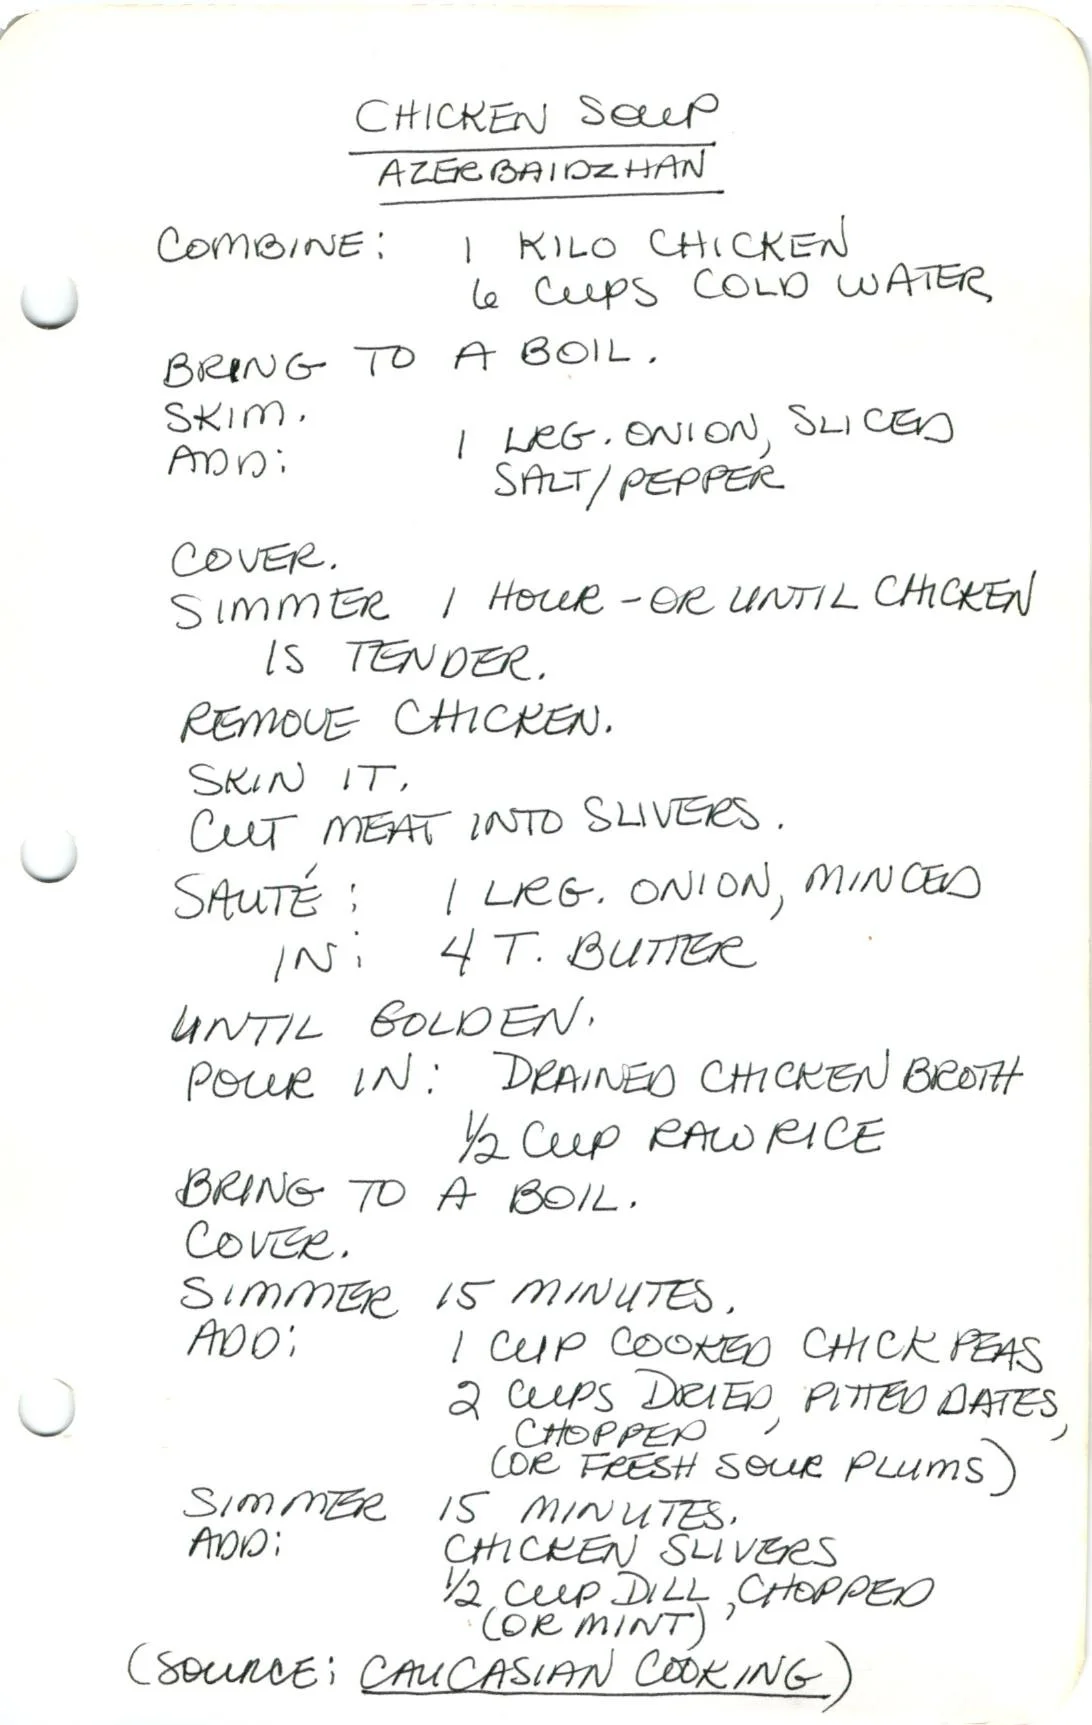 CHICKEN SOUP
AZERBAIDZHAN
COMBINE: 1 KILO CHICKEN
6 CUPS COLD WATER
BRING TO A BOIL.
SKIM.
ADD: 1 LRG. ONION, SLICED
SALT/PEPPER
COVER.
SIMMER 1 HOUR - OR UNTIL CHICKEN
IS TENDER.
REMOVE CHICKEN.
SKIN IT.
CUT MEAT INTO SLIVERS.
SAUTÉ: 1 LRG. ONION, MINCED
IN: 4 T. BUTTER
UNTIL GOLDEN.
POUR IN: DRAINED CHICKEN BROTH
1/2 CUP RAW RICE
BRING TO A BOIL.
COVER.
SIMMER 15 MINUTES.
ADD: 1 CUP COOKED CHICK PEAS
2 CUPS DRIED, PITTED DATES,
CHOPPED
(OR FRESH SOUR PLUMS)
SIMMER 15 MINUTES.
ADD: CHICKEN SLIVERS
1/2 CUP DILL, CHOPPED
(OR MINT)
(SOURCE: CAUCASIAN COOKING)